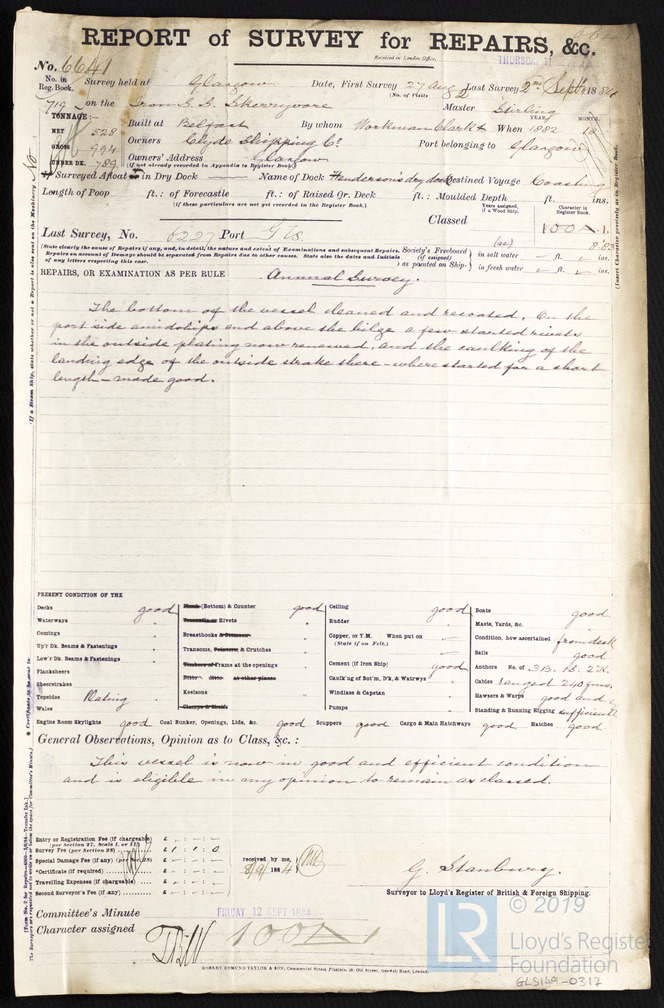 REPORT of SURVEY for REPAIRS, &c.
Received in London Office,
THURSDAY 11
No. 6641
No. in Reg. Book.
Survey held at Glasgow Date, First Survey 27 Aug Last Survey 2nd Septr 1884
(No. of Visits 2
719 on the Iron S.S. Skerryvore Master Stirling
TONNAGE:—
YEAR. MONTH.
NET 528
Built at Belfast By whom Workman Clark & When 1882 10
GROSS 994
Owners Clyde Shipping Co. Port belonging to Glasgow
UNDER DK. 789
Owners' Address Glasgow
(if not already recorded in Appendix to Register Book).
If Surveyed Afloat or in Dry Dock Name of Dock Henderson's dry dock Destined Voyage Coasting
Length of Poop ft.: of Forecastle ft.: of Raised Qr. Deck ft.: Moulded Depth ft. ins.
(If these particulars are not yet recorded in the Register Book.)
Years assigned, if a Wood Ship.
Character in Register Book.
Classed 100A1.
Last Survey, No. 6227 Port Gls
8.83
(State clearly the cause of Repairs if any, and, in detail, the nature and extent of Examinations and subsequent Repairs.
Repairs on account of Damage should be separated from Repairs due to other causes. State also the dates and initials
of any letters respecting this case.)
Society's Freeboard (if assigned) as painted on Ship-
in salt water — ft. ins.
in fresh water — ft. ins.
REPAIRS, OR EXAMINATION AS PER RULE Annual Survey.
The bottom of the vessel cleaned and recoated. On the
port side amidships and above the bilge a few started rivets
in the outside plating now renewed, and the caulking of the
landing edge of the outside strake there – where started for a short
length – made good.
PRESENT CONDITION OF THE
Decks good
Waterways "
Comings "
Up'r Dk. Beams & Fastenings "
Low'r Dk. Beams & Fastenings "
Planksheers
Sheerstrakes "
Topsides Plating "
Wales
Engine Room Skylights good
Plank (Bottom) & Counter good
Treenails or Rivets "
Breasthooks & Pointers "
Transoms, Pointers, & Crutches "
Timbers or Frame at the openings "
Ditto Ditto at other places
Keelsons "
Clamps & Shelfs
Coal Bunker, Openings, Lids, &c. good
Ceiling good
Rudder "
Copper, or Y.M. When put on
(State if on Felt.)
Cement (if Iron Ship) good
Caulk'g of Bot'm, D'k, & Watrwys "
Windlass & Capstan "
Pumps "
Scuppers good Cargo & Main Hatchways good Hatches good
Boats good
Masts, Yards, &c. "
Condition, how ascertained from deck
Sails good
Anchors No. of 3B. 1S. 2K.
Cables ranged 240 fms.
Hawsers & Warps good and
Standing & Running Rigging sufficient
General Observations, Opinion as to Class, &c.:
This vessel is now in good and efficient condition
and is eligible in my opinion to remain as classed.
Entry or Registration Fee (if chargeable) £ - : - : -
(per Section 27, Scale I. or II.)
Survey Fee (per Section 28) £ 1 : 1 : 0
Special Damage Fee (if any) (per Sec. 28) £ - : - : -
*Certificate (if required) £ - : - : -
Travelling Expenses (if chargeable) £ - : - : -
Second Surveyor's Fee (if any) £ - : - : -
received by me,
8/9/1884
G. Stanbury.
Surveyor to Lloyd's Register of British & Foreign Shipping.
Committee's Minute FRIDAY 12 SEPT 1884
Character assigned 100A1
ROBERT EDMUND TAYLOR & SON, Commercial Steam Printers, 19, Old Street, Goswell Road, London.
© 2019
LR
Lloyd's Register
Foundation
GLS149-0317